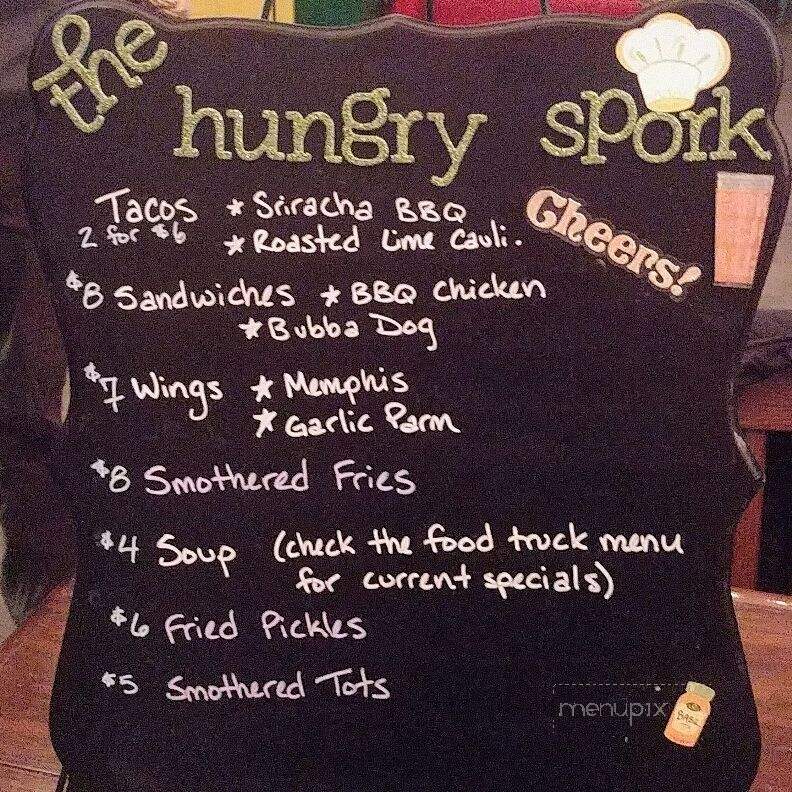 the
hungry spork
Tacos * Sriracha BBQ
2 for $6 * Roasted Lime Cauli.
Cheers!
$8 Sandwiches * BBQ Chicken
* Bubba Dog
$7 Wings * Memphis
* Garlic Parm
$8 Smothered Fries
$4 Soup (check the food truck menu
for current specials)
$6 Fried Pickles
$5 Smothered Tots
menupix